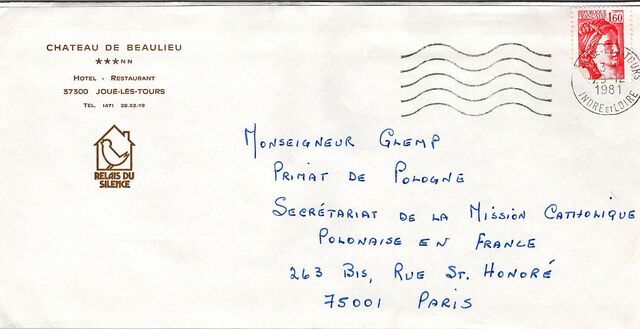 CHATEAU DE BEAULIEU
★★★NN
HOTEL - RESTAURANT
37300 JOUÉ-LES-TOURS
TEL. (47) 28.52.19
RELAIS DU
SILENCE
1,60
TOURS
1981
INDRE ET LOIRE
MONSEIGNEUR GLEMP
PRIMAT DE POLOGNE
SECRÉTARIAT DE LA MISSION CATHOLIQUE
POLONAISE EN FRANCE
263 BIS, RUE ST. HONORÉ
75001 PARIS